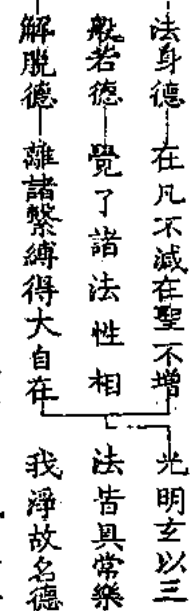 法身德—在凡不減在聖不增
般若德—覺了諸法性相
解脫德—離諸繫縛得大自在
光明玄以三
法皆具常樂
我淨故名德